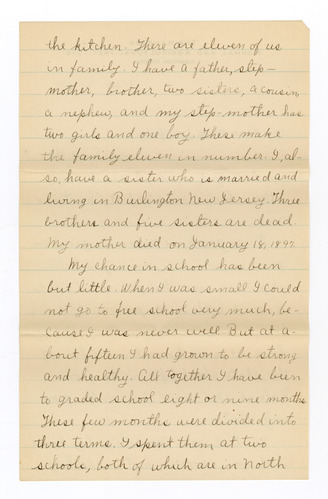 the kitchen. There are eleven of us
in family. I have a father, step-
mother, brother, two sisters, a cousin,
a nephew, and my step-mother has
two girls and one boy. These make
the family eleven in number. I, al-
so, have a sister who is married and
living in Burlington New Jersey. Three
brothers and five sisters are dead.
My mother died on January 18, 1897.
My chance in school has been
but little. When I was small I could
not go to free school very much, be-
cause I was never well. But at a-
bout fifteen I had grown to be strong
and healthy. All together I have been
to graded school eight or nine months.
These few months were divided into
three terms. I spent them at two
schools, both of which are in North